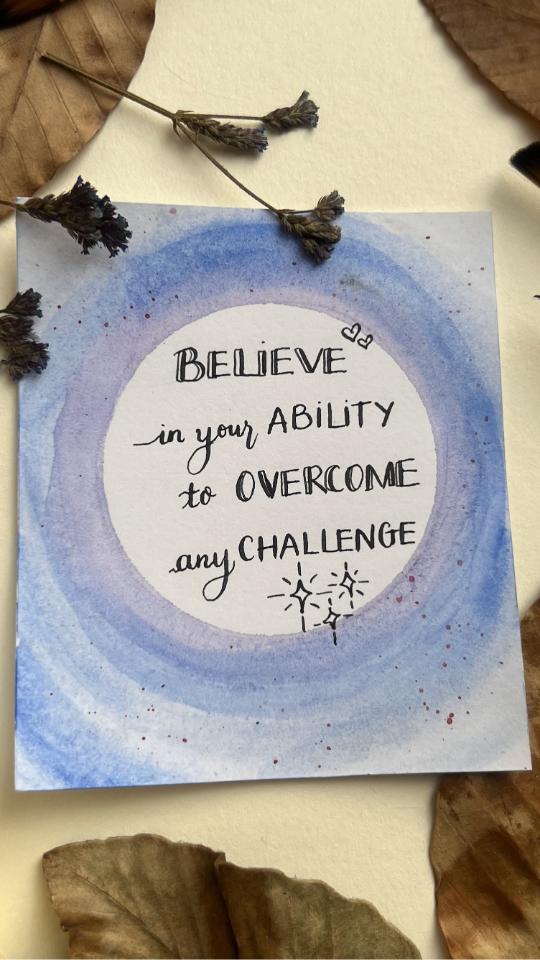 BELiEVE
in your ABiLiTY
to OVERCOME
any CHALLENGE